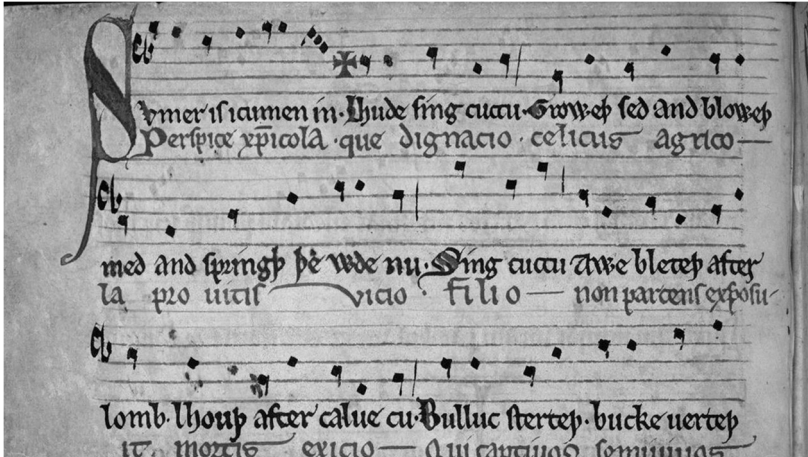 Symer is icumen in· Lhude sing cuccu· Groweþ sed and bloweþ
Perspice xp̅icola · que dignacio · celicus agrico
med and springþ þe wde nu· Sing cuccu Awe bleteþ after
la pro uitis vicio · filio non parcens exposu
lomb· lhouþ after calue cu· Bulluc sterteþ· bucke uerteþ
it mortis exicio Qui captiuos semiuiuos